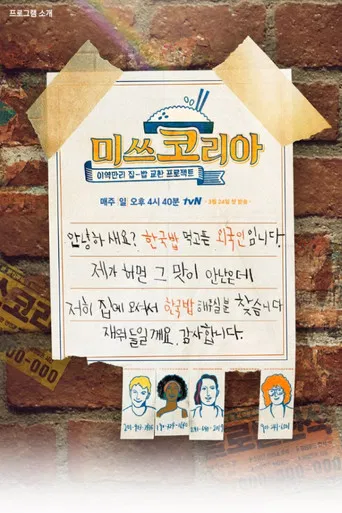 프로그램 소개
미쓰코리아
이역만리 집-밥 교환 프로젝트
매주 일 오후 4시 40분 tvN · 3월 24일 첫 방송 ·
안녕하새요? 한국밥 먹고튼 외국인입니다.
제가 하면 그 맛이 안난는데
저희 집에 오셔서 한국밥 해쥬실분 찾습니다
재워둘일게요. 감사합니다.
코리
00-000
000-000